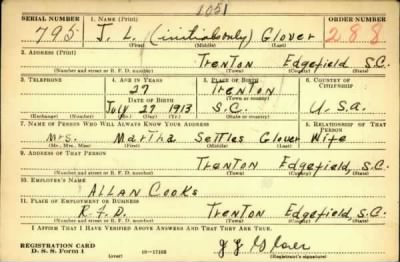 1051
SERIAL NUMBER 1. NAME (Print) ORDER NUMBER
795 J. L. (initial only) Glover 288
(First) (Middle) (Last)
2. ADDRESS (Print)
Trenton Edgefield S.C.
(Number and street or R. F. D. number) (Town) (County) (State)
3. TELEPHONE 4. AGE IN YEARS 5. PLACE OF BIRTH 6. COUNTRY OF CITIZENSHIP
27 Trenton
DATE OF BIRTH (Town or county)
July 27 1913 S.C. U.S.A.
(Exchange) (Number) (Mo.) (Day) (Yr.) (State or country)
7. NAME OF PERSON WHO WILL ALWAYS KNOW YOUR ADDRESS 8. RELATIONSHIP OF THAT PERSON
Mrs. Martha Settles Glover Wife
(Mr., Mrs., Miss) (First) (Middle) (Last)
9. ADDRESS OF THAT PERSON
Trenton Edgefield, S.C.
(Number and street or R. F. D. number) (Town) (County) (State)
10. EMPLOYER'S NAME
Allan Cooks
11. PLACE OF EMPLOYMENT OR BUSINESS
R.F.D. Trenton Edgefield, S.C.
(Number and street or R. F. D. number) (Town) (County) (State)
I AFFIRM THAT I HAVE VERIFIED ABOVE ANSWERS AND THAT THEY ARE TRUE.
REGISTRATION CARD
D. S. S. Form 1 (over) 16—17105
(Registrant's signature)